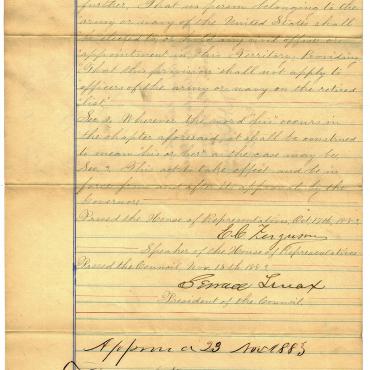 further, That no person belonging to the
army or navy of the United States shall
be elected to or hold any office or
appointment in this Territory, Providing
That this provision shall not apply to
officers of the army or navy on the retired
list"
Sec 2. Wherever the word "his" occurs in
the chapter aforesaid, it shall be construed
to mean "his or her" as the case may be,
Sec 3. This act to take effect and be in
force from and after its approval by the
Governor
Passed the House of Representatives, Oct 17th, 1883
E. C. Ferguson
Speaker of the House of Representatives
Passed the Council Nov. 15th 1883
Truax
President of the Council.
Approved 23 Nov 1883